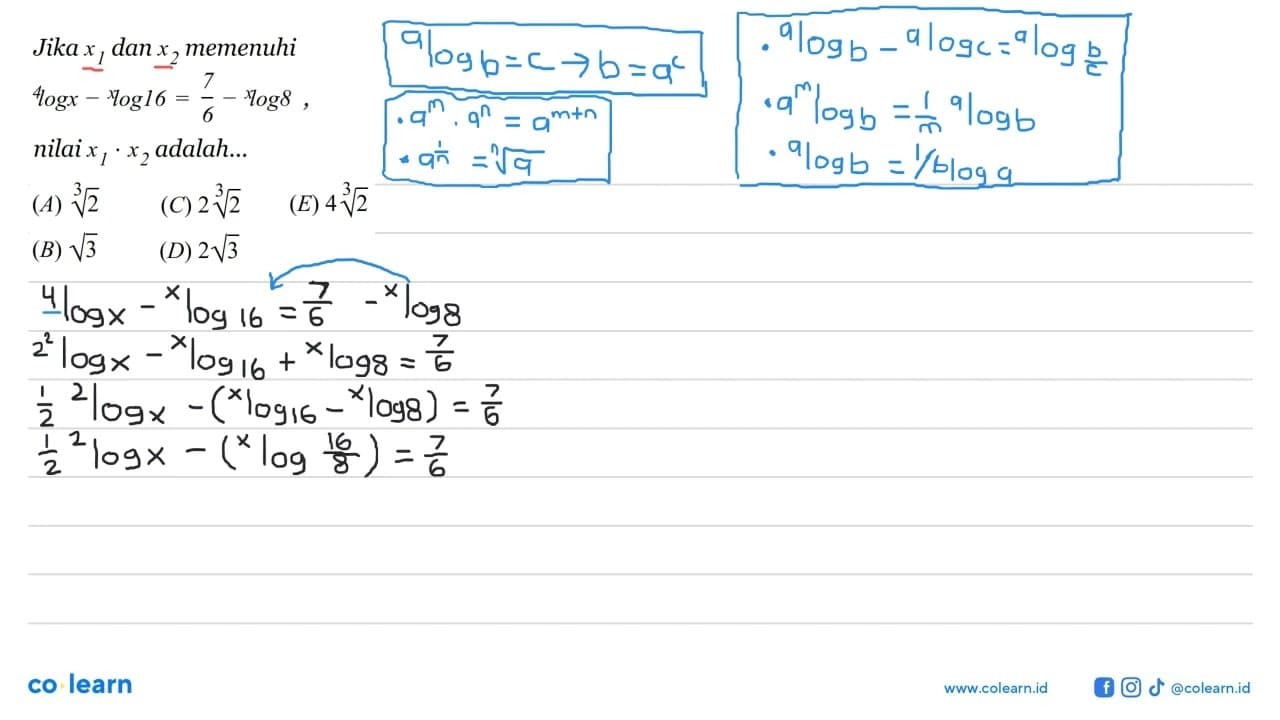 Jika x₁ dan x₂ memenuhi
⁴logx − ˣlog16 = 7/6 − ˣlog8 ,
nilai x₁ · x₂ adalah...
(A) ∛2 (C) 2∛2 (E) 4∛2
(B) √3 (D) 2√3
ᵃlog b = c → b = aᶜ
• aᵐ . aⁿ = aᵐ⁺ⁿ
• a^(1/n) = ⁿ√a
• ᵃlog b − ᵃlog c = ᵃlog b/c
• a^m log b = 1/m ᵃlog b
• ᵃlog b = 1/ᵇlog a
⁴log x − ˣlog 16 = 7/6 − ˣlog 8
2^2 log x − ˣlog 16 + ˣlog 8 = 7/6
1/2 ²log x − (ˣlog 16 − ˣlog 8) = 7/6
1/2 ²log x − (ˣlog 16/8) = 7/6
co·learn
www.colearn.id
@colearn.id